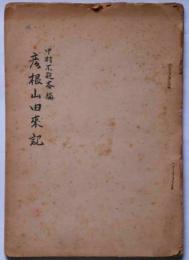 中村不能斎編
彦根山由来記